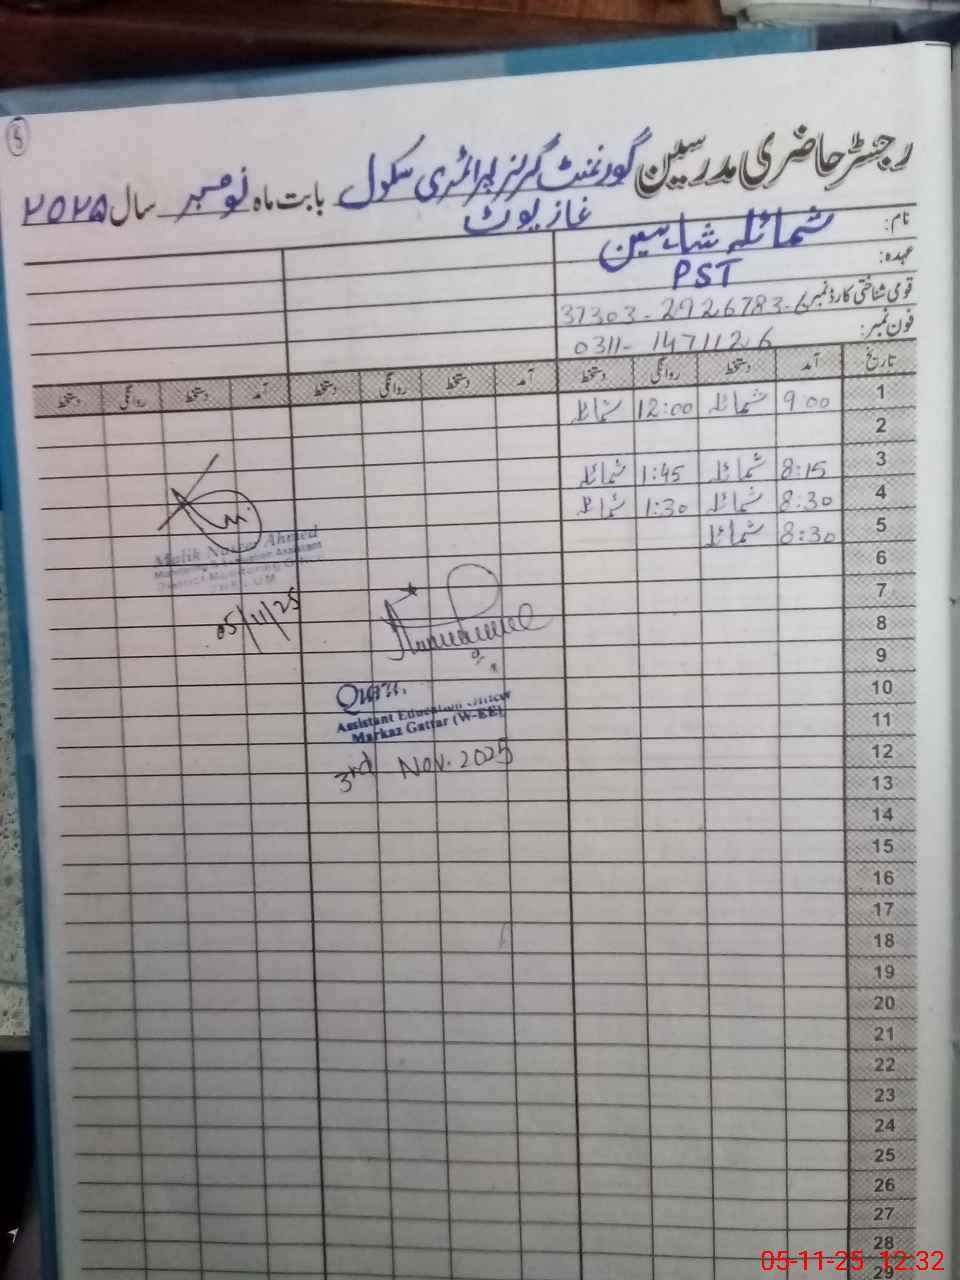 5
رجسٹر حاضری مدرسین گورنمنٹ گرلز پرائمری سکول بابت ماہ نومبر سال ٢٥٢٥
نام: شمائلہ شاہین
عہدہ: PST
قومی شناختی کارڈ نمبر 37303-2926783-6
فون نمبر: 0311-1471126
تاریخ آمد دستخط روانگی دستخط آمد دستخط روانگی دستخط آمد دستخط روانگی دستخط
1 9:00 شمائلہ 12:00 شمائلہ
2
3 8:15 شمائلہ 1:45 شمائلہ
4 8:30 شمائلہ 1:30 شمائلہ
5 8:30 شمائلہ
6
7
8
9
10
11
12
13
14
15
16
17
18
19
20
21
22
23
24
25
26
27
28
29
Malik Ahmed
Assistant
District Monitoring
05/11/25
Assistant Education Officer
Markaz Gattar (W-EE)
3rd Nov. 2025
05-11-25 12:32